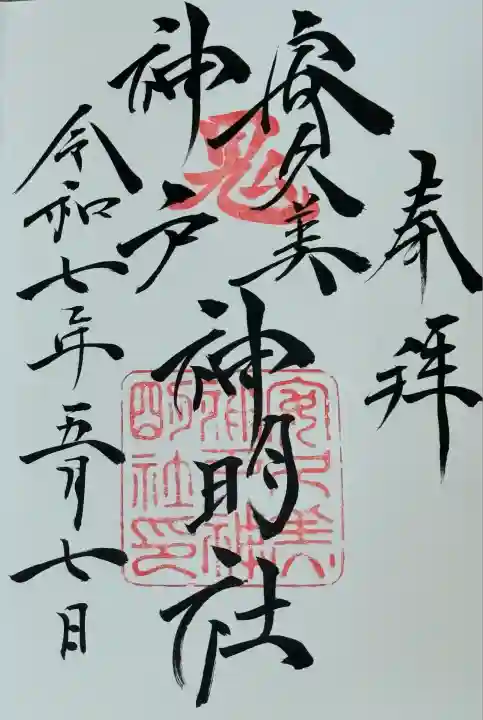 奉拝
安久美
神戸
神明社
令和七年五月七日
鬼
安久美神戸神明社印